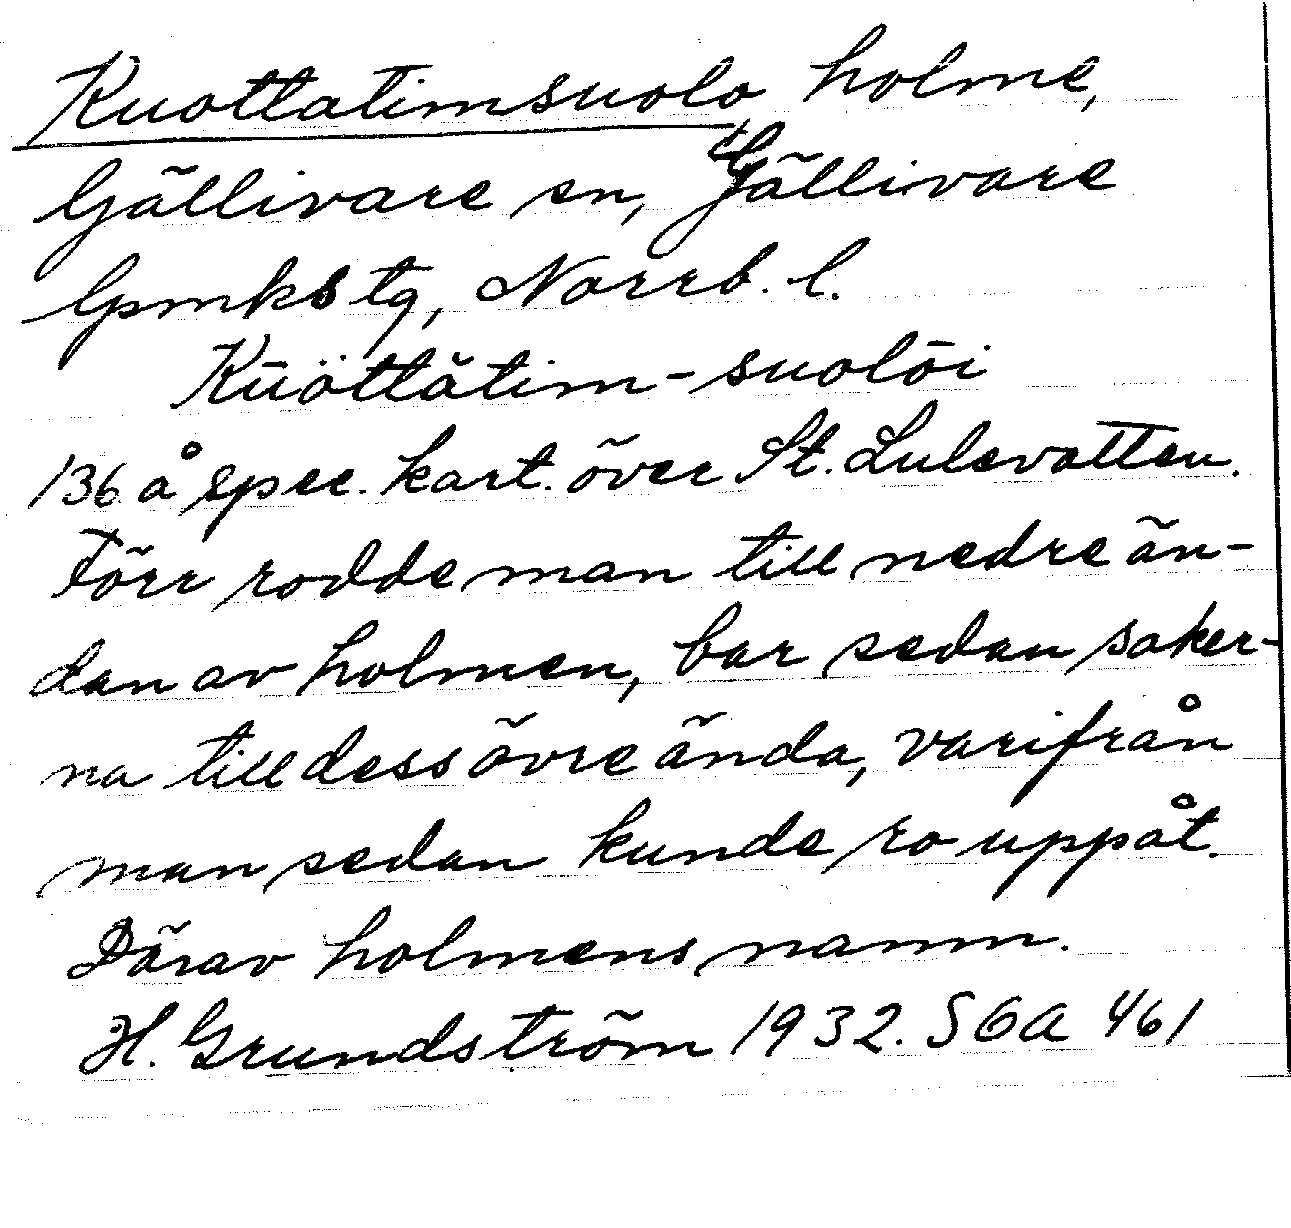 Kuottatimsuolo holme,
Gällivare sn, Gällivare
lpmks tg, Norrb. l.
Kūöttătim-suolōi
136 å spec. kart. över St. Lulevatten.
Förr rodde man till nedre än-
dan av holmen, bar sedan saker-
na till dess övre ända, varifrån
man sedan kunde ro uppåt.
Därav holmens namn.
H. Grundström 1932. SOA 461